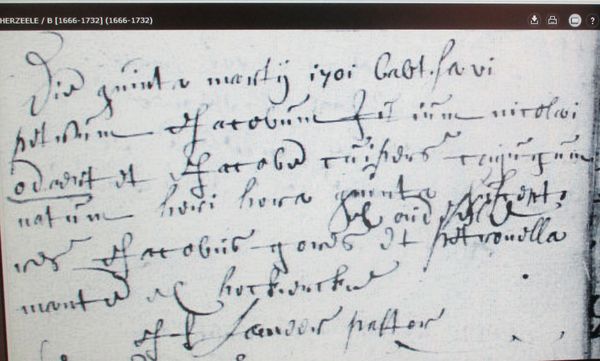 HERZEELE / B [1666-1732] (1666-1732)
Die quinta martij 1701 babtisavi
petrum Jacobum filium nicolai
odaert et Jacobe cuipers conjugum
natum heri hora quinta suscept
ex oud
res Jacobus gores et petronella
mante ex hockercke
pastor